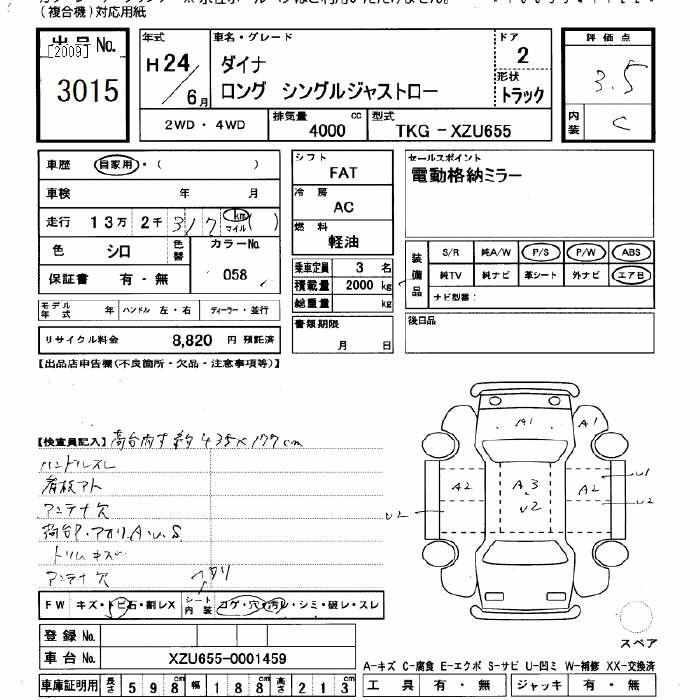 (複合機)対応用紙
出品 No.
[2009]
3015
年式
H24/6月
車名・グレード
ダイナ
ロング シングルジャストロー
ドア
2
形状
トラック
評価点
3.5
内装
C
2WD・4WD
排気量
4000 cc
型式
TKG-XZU655
車歴 自家用・( )
車検 年 月
走行 13万 2千 317 km マイル ( )
色 シロ 色替 カラーNo. 058
保証書 有・無
モデル年式 年 ハンドル 左・右 ディーラー・並行
リサイクル料金 8,820 円 預託済
シフト
FAT
冷房
AC
燃料
軽油
乗車定員 3 名
積載量 2000 kg
総重量 kg
書類期限
月 日
セールスポイント
電動格納ミラー
装備品
S/R 純A/W P/S P/W ABS
純TV 純ナビ 革シート 外ナビ エアB
ナビ型番:
後日品
【出品店申告欄(不良箇所・欠品・注意事項等)】
【検査員記入】 荷台内寸約 435×177cm
ハンドルスレ
看板アト
アンテナ穴
荷台P.アオリA.U.S
トリムキズ
アンテナ穴
FW キズ・トビ石・割レX
シート内装 コゲ・穴・汚レ・シミ・破レ・スレ
登録 No.
車台 No. XZU655-0001459
車庫証明用 長さ 598 幅 188 高さ 213
A1
A1
A2
A3
U2
A2
U1
U2
U2
スペア
A-キズ C-腐食 E-エクボ S-サビ U-凹ミ W-補修 XX-交換済
工具 有・無 ジャッキ 有・無